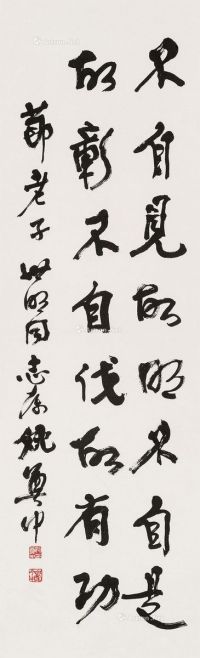 不自見故明不自是
故彰不自伐故有功
節老子 世明同志屬 姚奠中